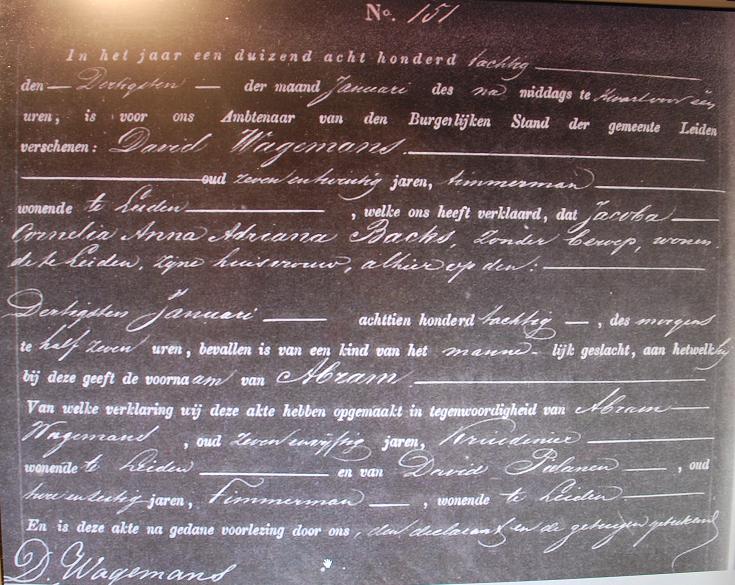 No. 151
In het jaar een duizend acht honderd tachtig
den Dertigsten der maand Januari des na middags te kwart voor één
uren, is voor ons Ambtenaar van den Burgerlijken Stand der gemeente Leiden
verschenen: David Wagemans
oud zeven en twintig jaren, timmerman
wonende te Leiden, welke ons heeft verklaard, dat Jacoba
Cornelia Anna Adriana Backs, zonder beroep, wonen-
de te Leiden, zijne huisvrouw, alhier op den:
Dertigsten Januari achttien honderd tachtig, des morgens
te half zeven uren, bevallen is van een kind van het manne-lijk geslacht, aan hetwelk hij
bij deze geeft de voornaam van Abram
Van welke verklaring wij deze akte hebben opgemaakt in tegenwoordigheid van Abram
Wagemans, oud zeven en vijftig jaren, Kruidenier
wonende te Leiden en van David Pelanen, oud
twee en zestig jaren, Timmerman, wonende te Leiden
En is deze akte na gedane voorlezing door ons, den declarant en de getuigen geteekend
D. Wagemans